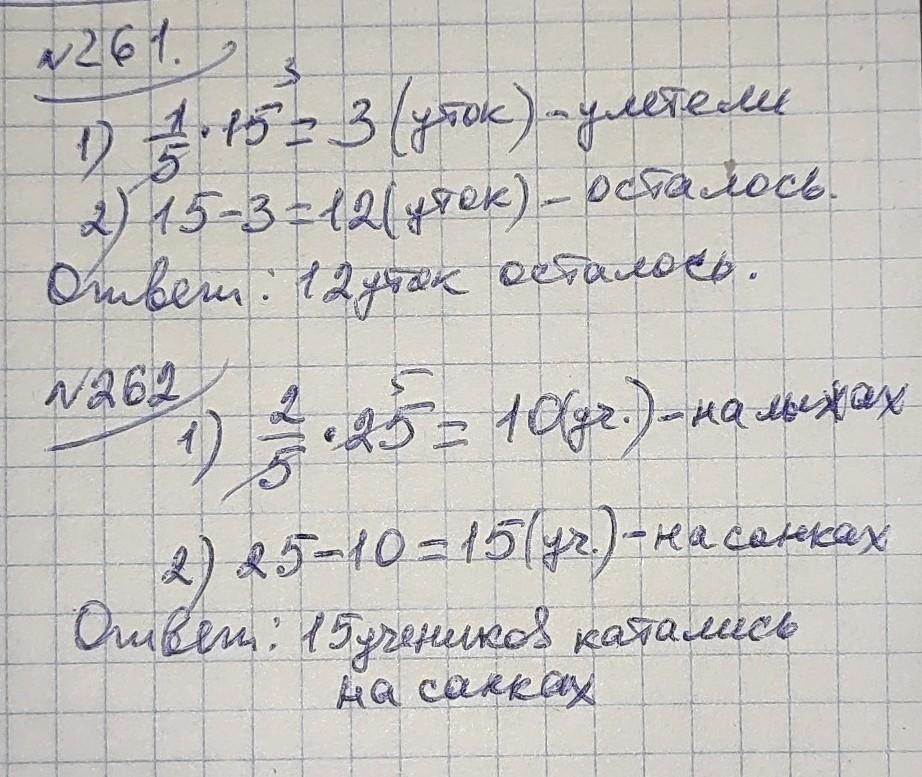 №261.
1) 1/5 · 15 3 = 3 (уток) - улетели
2) 15 - 3 = 12 (уток) - осталось.
Ответ: 12 уток осталось.
№262
1) 2/5 · 25 5 = 10 (уч.) - на лыжах
2) 25 - 10 = 15 (уч.) - на санках
Ответ: 15 учеников катались
на санках